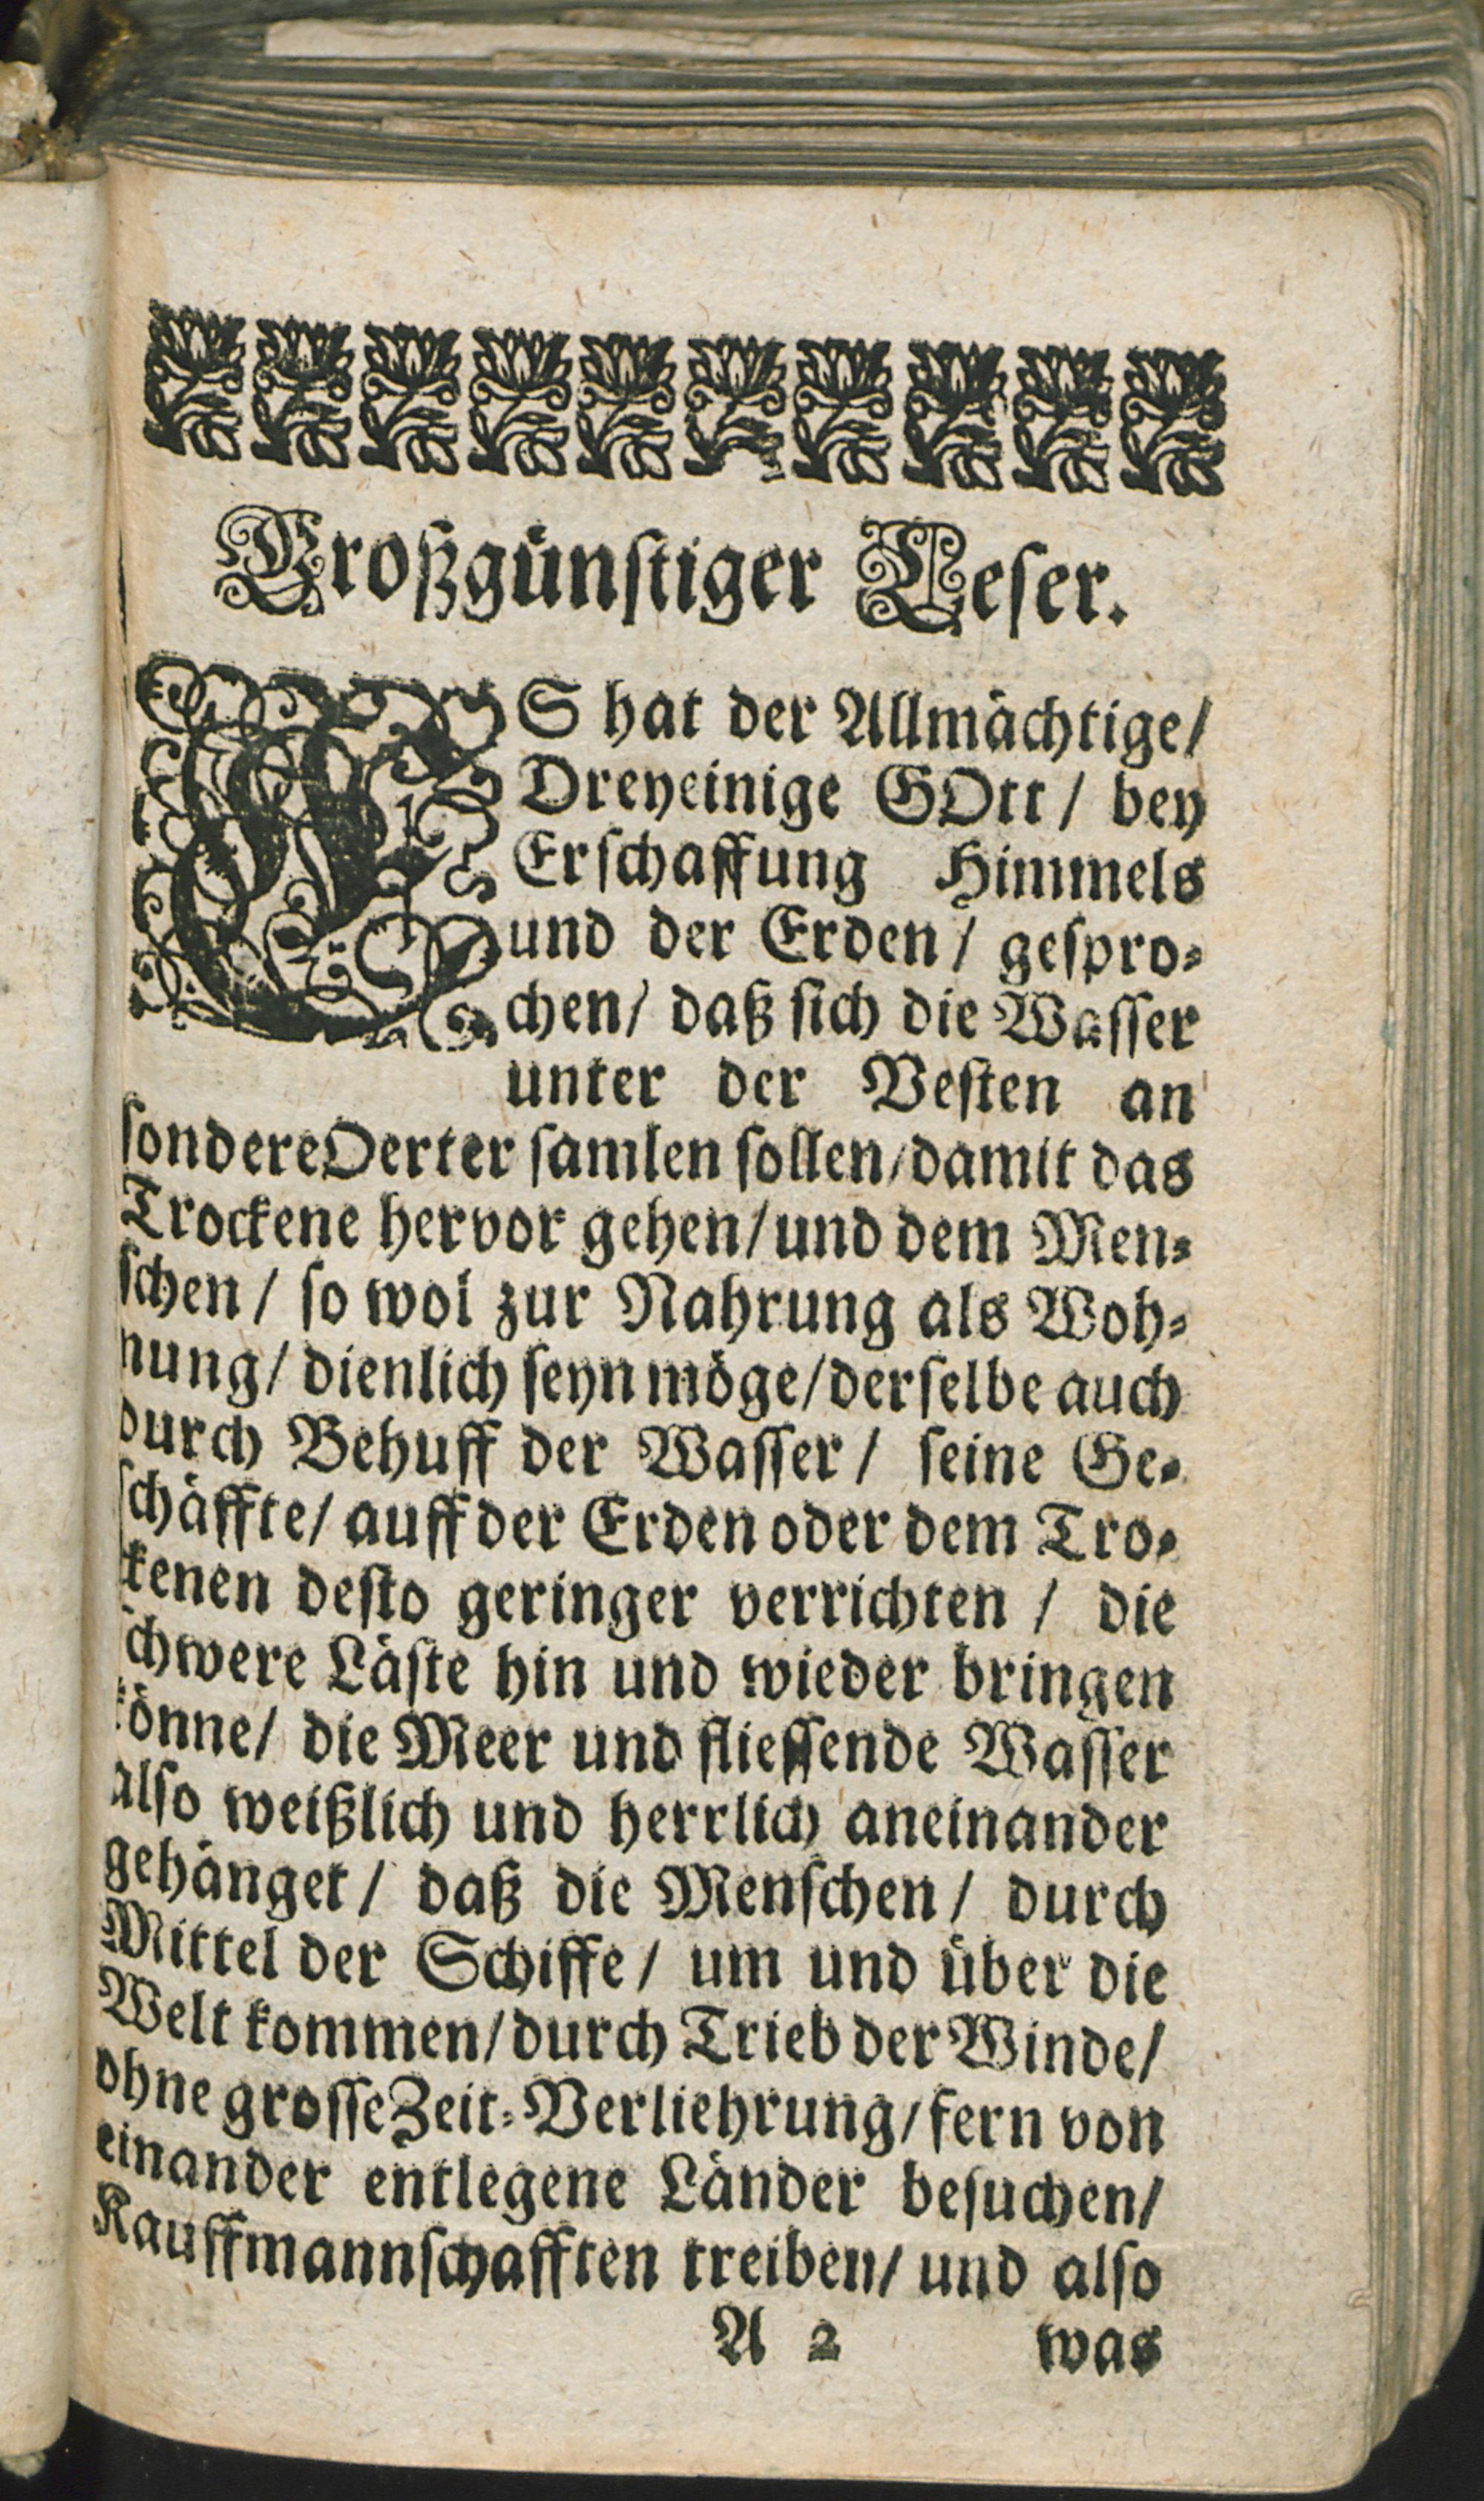 Großgünstiger Leser.
ES hat der Allmächtige/
Dreyeinige GOtt/ bey
Erschaffung Himmels
und der Erden/ gespro-
chen/ daß sich die Wasser
unter der Vesten an
sondere Oerter samlen sollen/ damit das
Trockene hervor gehen/ und dem Men-
schen/ so wol zur Nahrung als Woh-
nung/ dienlich seyn möge/ derselbe auch
durch Behuff der Wasser/ seine Ge-
schäffte/ auff der Erden oder dem Tro-
ckenen desto geringer verrichten/ die
schwere Läste hin und wieder bringen
könne/ die Meer und fliessende Wasser
also weißlich und herrlich aneinander
gehänget/ daß die Menschen/ durch
Mittel der Schiffe/ um und über die
Welt kommen/ durch Trieb der Winde/
ohne grosse Zeit-Verliehrung/ fern von
einander entlegene Länder besuchen/
Kauffmannschafften treiben/ und also
A 2 was